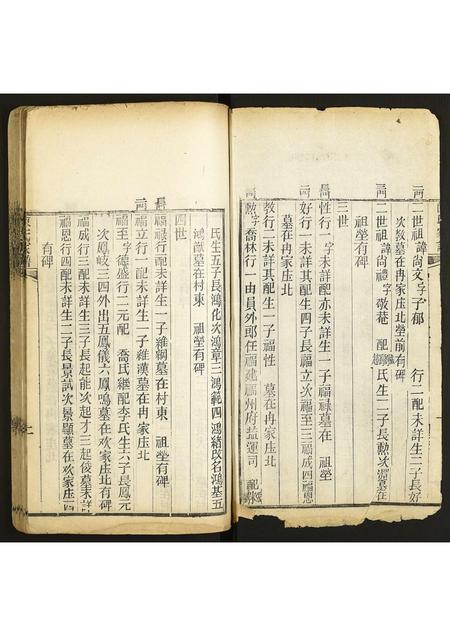 二世祖諱尚文字子郁 行二配未詳生二子長好
次教墓在冉家庄北塋前有碑
二世祖諱尚禮字敬菴 配 氏生二子長勲次 墓在
祖塋有碑
三世
性行一字未詳配亦未詳生一子福祿墓在 祖塋
好行一未詳其配生四子長福立次福至三福成四福恩
墓在冉家庄北
教行二未詳其配生一子福性 墓在冉家庄北
勲字喬林行一由員外郎任福建福州府塩運司 配
氏生五子長鴻化次鴻章三鴻範四鴻緒改名鴻基五
鴻 墓在村東 祖塋有碑
四世
福祿行 配未詳生一子維綱墓在村東 祖塋有碑
福立行一配未詳生一子維漢墓在冉家庄北
福至字德盛行二元配 喬氏継配李氏生六子長鳳元
次鳳岐三四外出五鳳儀六鳳鳴墓在欢家庄北有碑
福成行三配未詳生三子長起能次起才三起俊墓未詳
福恩行四配未詳生二子長景試次景顯墓在欢家庄西
有碑